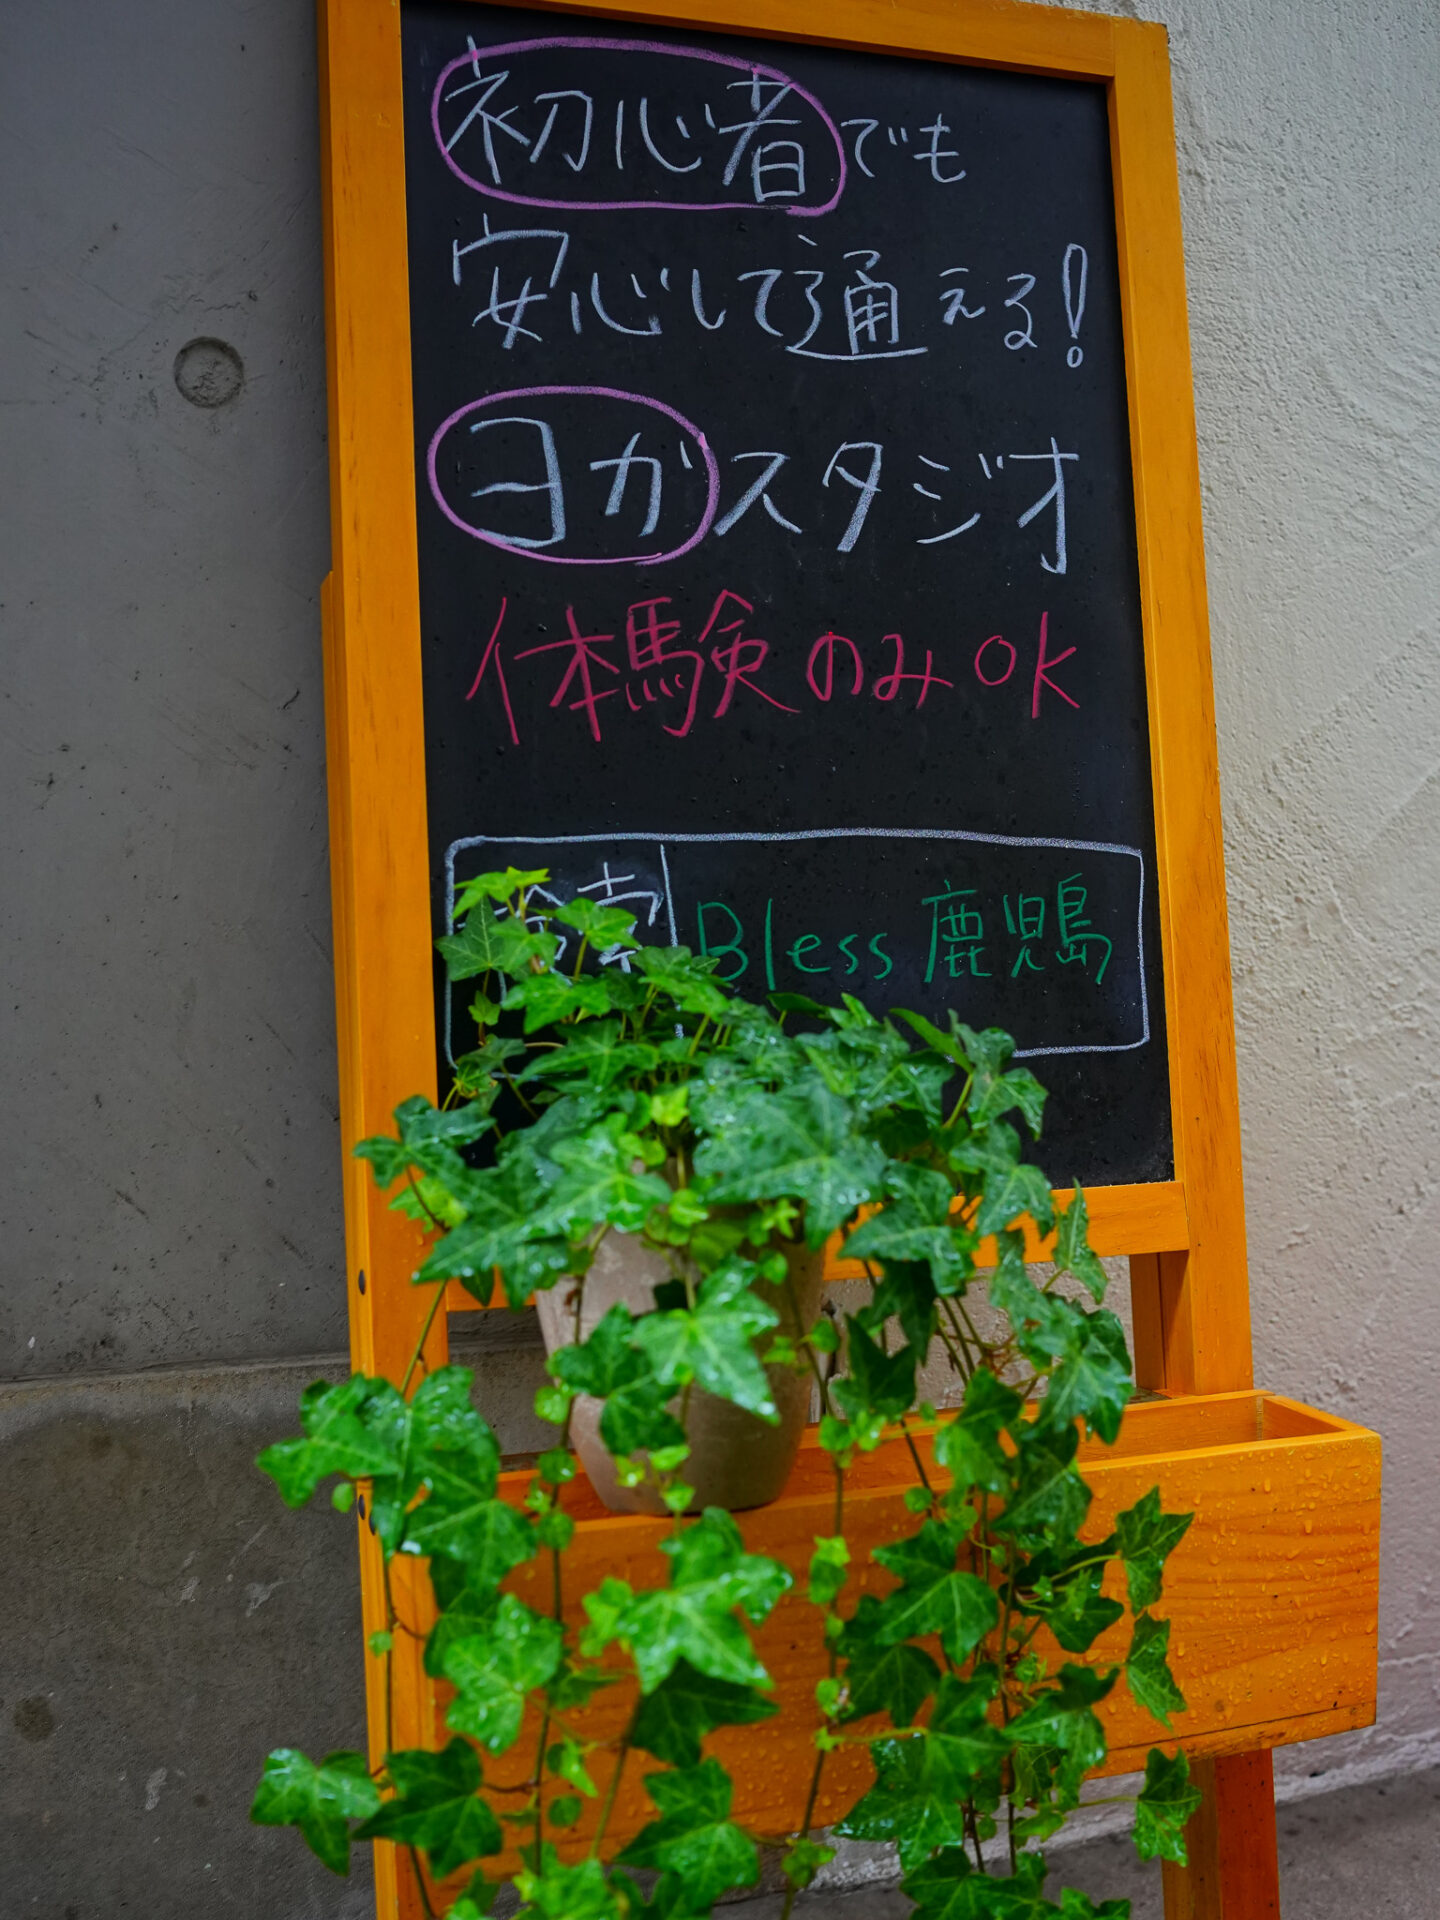 初心者でも
安心して通える!
ヨガスタジオ
体験のみOK
検索 Bless 鹿児島